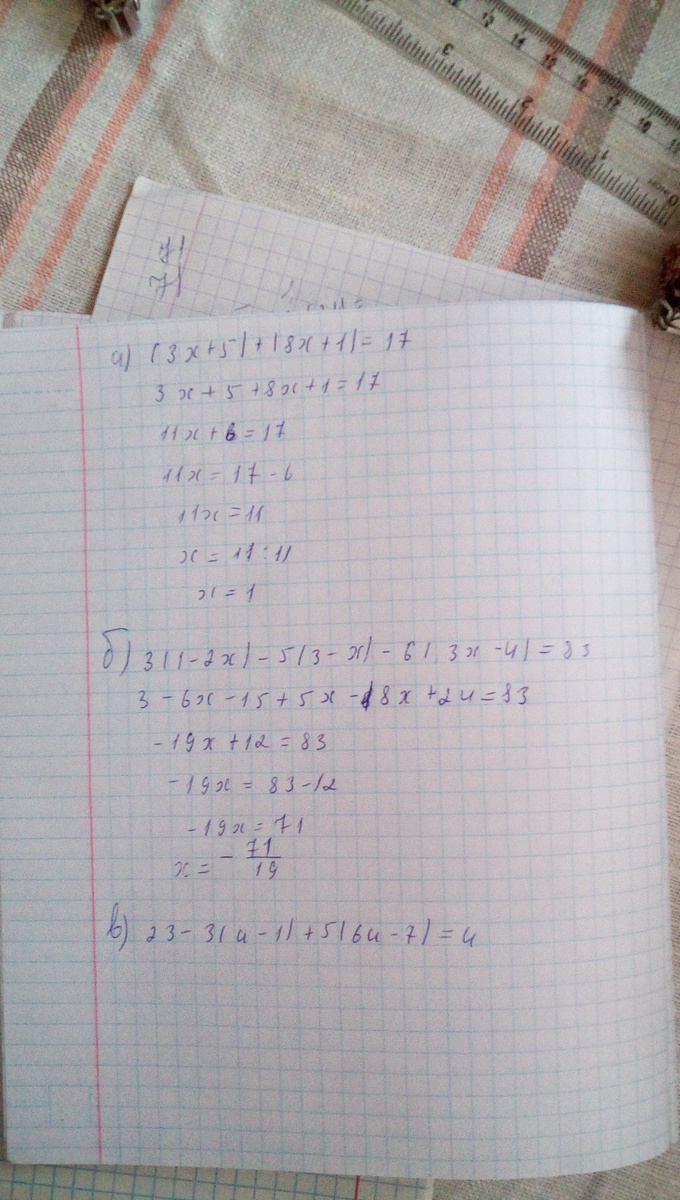 а) (3x+5)+(8x+1)=17
3x+5+8x+1=17
11x+6=17
11x=17-6
11x=11
x=11:11
x=1
б) 3(1-2x)-5(3-x)-6(3x-4)=83
3-6x-15+5x-18x+24=83
-19x+12=83
-19x=83-12
-19x=71
x=-71/19
в) 23-3(4-1)+5(64-7)=4